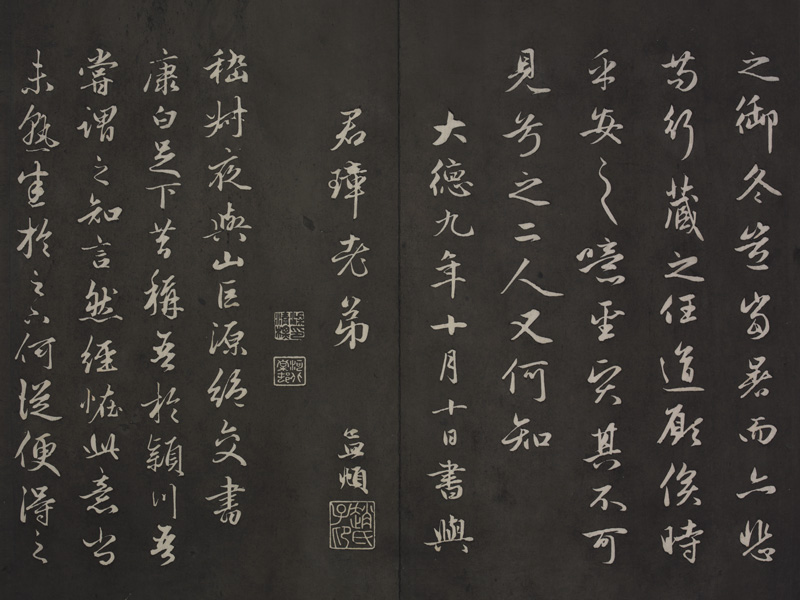 之御冬豈當暑而亦悲
苟行藏之任道顧俟時
乎安之噫聖賢其不可
見兮之二人又何知
大德九年十月十日書與
君璋老弟
孟頫
趙氏子
嵇叔夜與山巨源絕交書
康白足下昔稱吾於穎川吾
嘗謂之知言然經怪此意尚
未熟悉於足下何從便得之